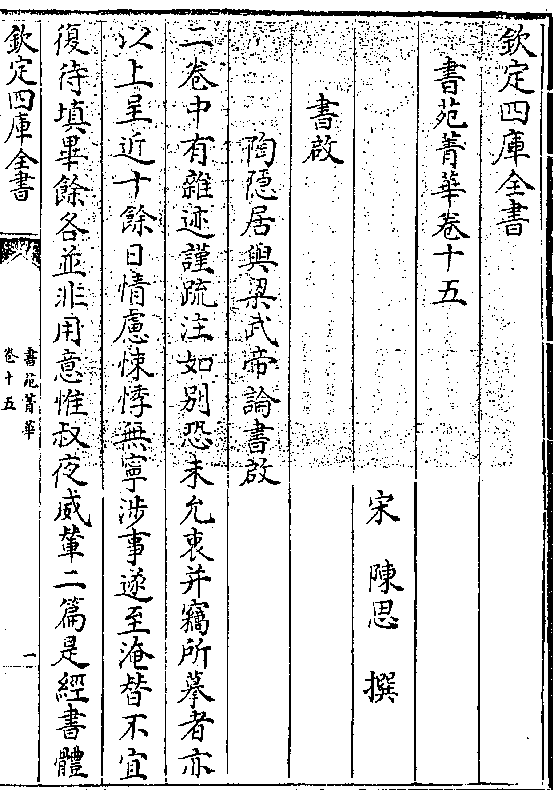 欽定四庫全書
書苑菁華卷十五
宋 陳思 撰
書啟
陶隠居與梁武帝論書啟
二卷中有雜迹謹疏注如别恐未允衷并竊所摹者亦
以上呈近十餘日情慮悚悸無寧渉事遂至淹替不宜
復待填畢餘各並非用意惟叔夜威輦二篇是經書體
欽定四庫全書
書苑菁華
卷十五
一